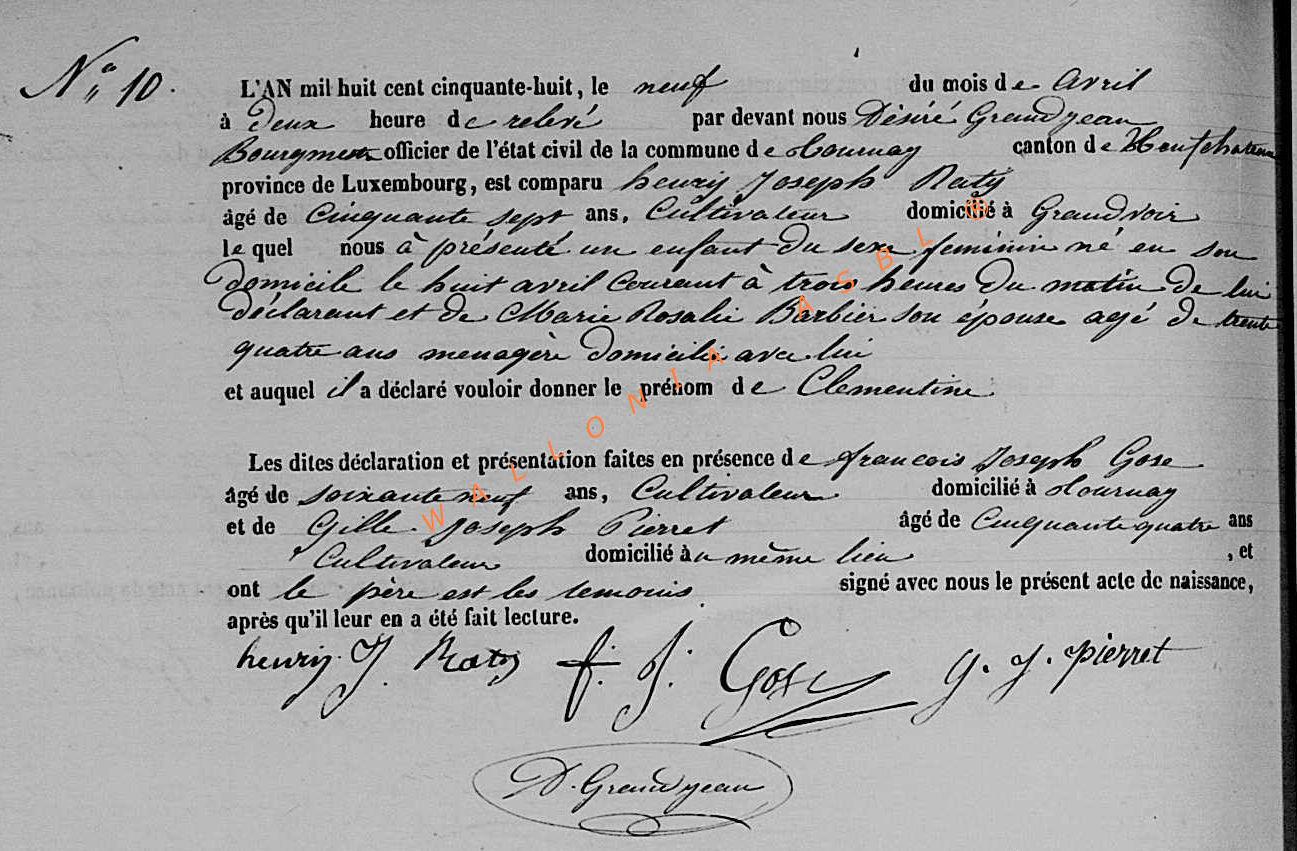 N° 10.
L'AN mil huit cent cinquante-huit, le neuf du mois de avril
à deux heure de relevé par devant nous Désiré Grandjean
Bourgmestre officier de l'état civil de la commune de Tournay canton de Neufchateau
province de Luxembourg, est comparu henry Joseph Raty
âgé de Cinquante sept ans, Cultivateur domicilié à Grandvoir
le quel nous à présenté un enfant du sexe feminin né en son
domicile le huit avril courant à trois heures du matin de lui
déclarant et de Marie Rosalie Barbier son épouse agé de trente
quatre ans menagère domicilié avec lui
et auquel il a déclaré vouloir donner le prénom de Clementine
Les dites déclaration et présentation faites en présence de francois Joseph Gose
âgé de soixante neuf ans, Cultivateur domicilié à Tournay
et de Gille Joseph Pierret âgé de Cinquante quatre ans
Cultivateur domicilié au même lieu , et
ont le père est les temouis signé avec nous le présent acte de naissance,
après qu'il leur en a été fait lecture.
henry J. Raty f. J. Gose G. J. pierret
D. Grandjean
WALLONIA ASBL ©